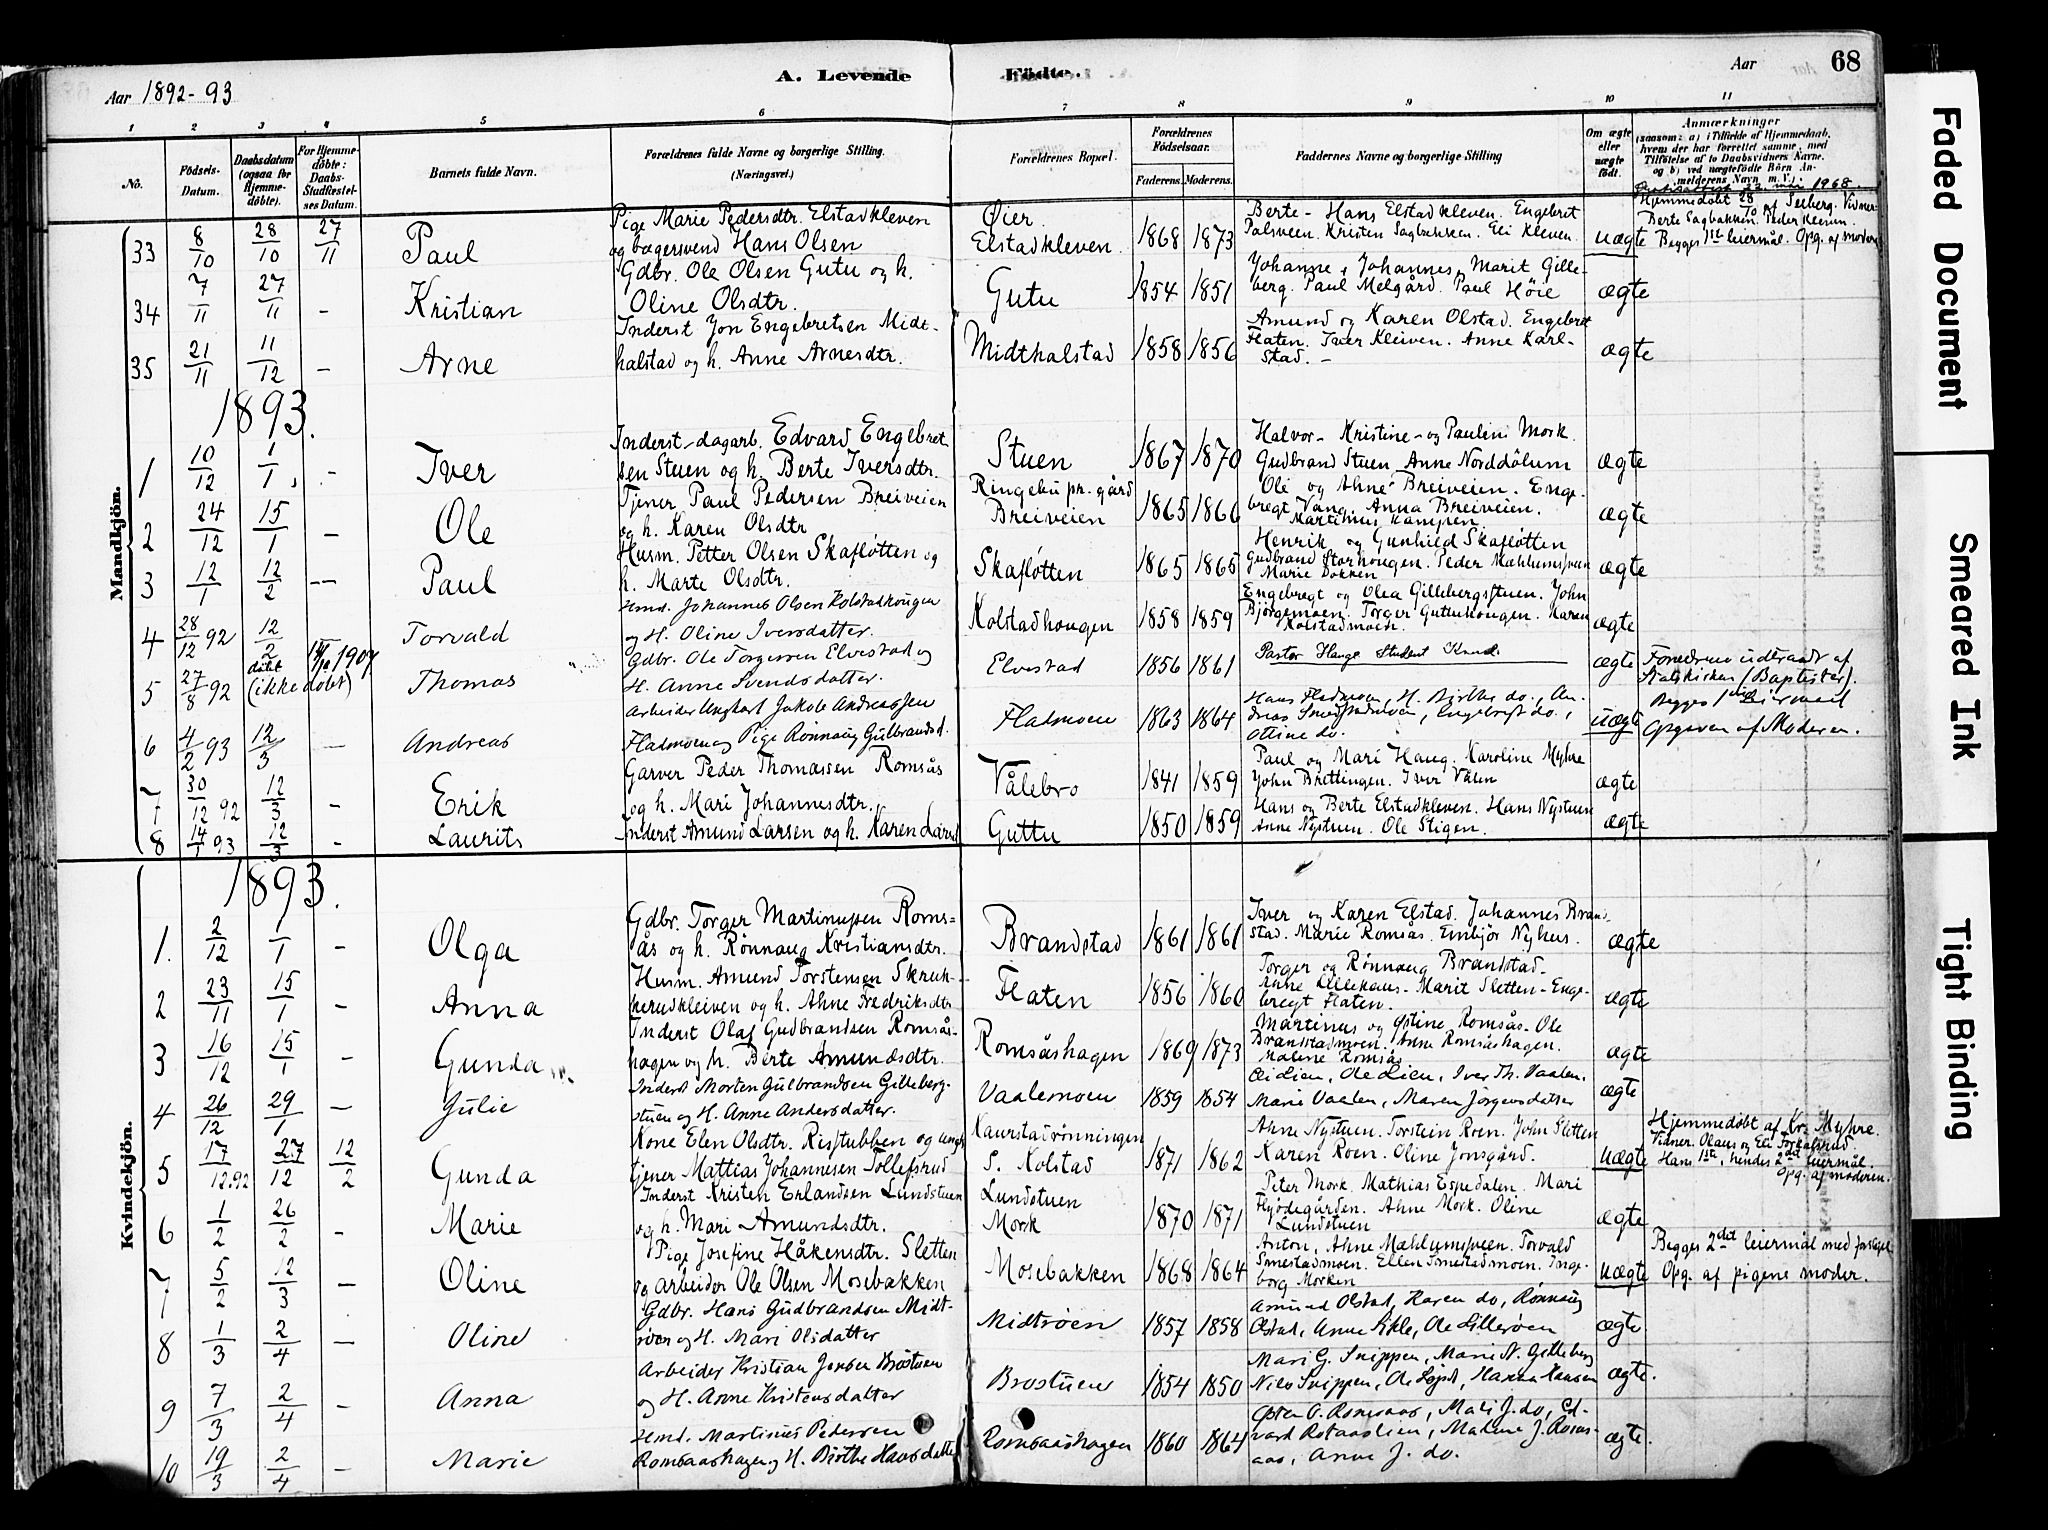 A. Levende Födte.
Aar 1892-93
Aar 68
1 2 3 4 5 6 7 8 9 10 11
No.
Födsels-Datum.
Daabsdatum (ogsaa for Hjemme-döbte).
For Hjemme-döbte: Daabs-Stadfæstel-ses Datum.
Barnets fulde Navn.
Forældrenes fulde Navne og borgerlige Stilling. (Næringsvei.)
Forældrenes Bopæl.
Forældrenes Födselsaar.
Faderens. Moderens.
Faddernes Navne og borgerlige Stilling
Om ægte eller uægte födt.
Anmærkninger
(saasom: a) i Tilfælde af Hjemmedaab, hvem der har forrettet samme, med Tilföielse af to Daabsvidners Navne, og b) ved uægtefödte Börn An-melderens Navn m. V.)
22. mai 1968.
Mandkjön.
33 8/10 28/10 27/11 Paul
Pige Marie Pedersdtr. Elstadkleven
og bagersvend Hans Olsen
Øier
Elstadkleven. 1868 1873
Berte - Hans Elstadkleven. Engebret
Palsveen. Kristen Sagbakken. Eli Kleven.
uægte
Hjemmedøbt 28/10 af Seeberg. Vidner
Berte Sagbakken. Peder Kleven.
Begges 1ste leiermål. Opg. af moderen
34 7/11 27/11 - Kristian
Gdbr. Ole Olsen Gutu og h.
Oline Olsdtr.
Gutu 1854 1851
Johanne, Johannes, Marit Gille-
berg. Paul Melgård. Paul Höie
ægte
35 21/11 11/12 - Arne
Inderst Jon Engebretsen Midt-
halstad og h. Anne Arnesdtr.
Midthalstad 1858 1856
Amund og Karen Olstad. Engebret
Flaten. Iver Kleiven. Anne Karl-
stad. -
ægte
1893.
1 10/12 1/1 - Iver
Inderst - dagarb. Edvard Engebret
sen Stuen og h. Berte Iversdtr.
Stuen 1867 1870
Halvor - Kristine - og Pauline Mork.
Gudbrand Stuen. Anne Norddålum
ægte
2 24/12 15/1 - Ole
Tjener Paul Pedersen Breiveien
og h. Karen Olsdtr
Ringebu pr.gård
Breiveien 1865 1866
Ole og Ahne Breiveien. Enge-
bregt Vang. Anna Breiveien.
Martinus Kampen
ægte
3 12/1 12/2 - Paul
Husm. Petter Olsen Skafløtten og
h. Marte Olsdtr.
Skafløtten 1865 1865
Henrik og Gunhild Skafløtten
Gudbrand Storhougen. Peder Mæhlumsveen
Marie Dokken
ægte
4 28/12 92 12/2 Torvald
Hmd. Johannes Olsen Kolstadhougen
og H. Oline Iversdatter.
Kolstadhougen 1858 1859
Engebregt og Olea Gillebergstuen. John
Björgemoen. Torger Guttuhougen. Karen
Kolstadmoen.
ægte
5 27/8 92 døbt (ikke døbt) 1907 Thomas
Gdbr. Ole Torgersen Elvestad og
H. Anne Svendsdatter.
Elvestad 1856 1861
Pastor Hauge Student
ægte
Forældrene udtraadt af
Statskirken (Baptister).
6 4/2 93 12/3 - Andreas
Arbeider Ungkarl Jakob Andreassen
Fladmoen og Pige Rønnaug Gulbrandsd.
Fladmoen 1863 1864
Hans Fladmoen, H. Birthe do., An-
dreas Smestadmoen, Engebrigt do.,
Ottine do.
uægte
Begges 1ste Leiermaal
Opgiven af Moderen.
7 30/12 92 12/3 - Erik
Garver Peder Thomassen Romsås
og h. Mari Johannesdtr.
Vålebro 1841 1859
Paul og Mari Haug. Karoline Myhre
John Brettingen. Iver Vålen
ægte
8 14/1 93 12/3 - Laurits
Inderst Amund Larsen og h. Karen Larsd
Guttu 1850 1859
Hans og Berte Elstadkleven. Hans Nystuen
Anne Nystuen. Ole Stigen.
ægte
Kvindekjön.
1893.
1. 2/12 1/1 - Olga
Gdbr. Torger Martinussen Roms-
ås og h. Rønnaug Kristiansdtr.
Brandstad 1861 1861
Iver og Karen Elstad. Johannes Brand-
stad. Marie Romsås. Embjör Nyhus.
ægte
2 23/11 15/1 - Anna
Husm. Amund Torstensen Skruk-
kerudkleiven og h. Ahne Fredriksdtr
Flaten 1856 1860
Torger og Rønnaug Brandstad-
Anne Lillehaus - Marit Sletten - Enge-
bregt Flaten.
ægte
3 16/12 15/1 - Gunda
Inderst Olaf Gudbrandsen Romsås-
hagen og h. Berte Amundsdtr.
Romsåshagen 1869 1873
Martinus og Østine Romsås. Ole
Brandstadmoen. Anne Romsåshagen.
Maline Romsås
ægte
4 26/12 29/1 - Julie
Inderst Morten Gulbrandsen Gilleberg-
stuen og H. Anne Andersdatter.
Vaalemoen 1859 1854
Eli Lien, Ole Lien, Iver Th. Vaalen.
Marie Vaalen, Maren Jörgensdatter
ægte
5 17/12.92 27/12 12/2 Gunda
Kone Elen Olsdtr. Risstubben og ungk.
tjener Mattias Johannesen Tollefsrud
Kaurstadrønningen
S. Kolstad 1871 1862
Ahne Nystuen. Torstein Roen. John Sletten
Karen Roen. Oline Jonsgård.
uægte
Hjemmedøbt af Kr. Myhre.
Vidner. Olaus og Eli Torkalsrud
Hans 1ste, hendes 2det leiermål.
Opg. af moderen.
6 1/2 26/2 - Marie
Inderst Kristen Erlandsen Lundstuen
og h. Mari Amundsdtr.
Lundstuen
Mork 1870 1871
Peter Mork. Mathias Espedalen. Mari
Flyödegården. Ahne Mork. Oline
Lundstuen
ægte
7 5/2 12/3 - Oline
Pige Josefine Håkensdtr. Sletten
og arbeider Ole Olsen Mosebakken
Mosebakken 1868 1864
Anton, Ahne Mæhlumsveen. Torvald
Smestadmoen. Ellen Smestadmoen. Inge-
borg Morken
uægte
Begges 2det leiermål med forskjel.
Opg. af pigens moder.
8 1/3 2/4 - Oline
Gdbr. Hans Gudbrandsen Midt-
röen og H. Mari Olsdatter
Midtröen 1857 1858
Amund Olstad, Karen do, Rönnaug
Olstad, Anne Sikle, Ole Lilleröen
ægte
9 7/3 2/4 - Anna
Arbeider Kristian Jensen Brostuen
og H. Anne Kristensdatter
Brostuen 1854 1850
Mari G. Snippen, Marie N. Gilleberg
Nils Snippen, Ole Löst, Karen Hansen
ægte.
10 19/3 2/4 - Marie
Hmd. Martinus Pedersen
Romsaashagen og H. Birthe Hansdatter
Romsaashagen 1860 1864
Østen O. Romsaas, Mari J. do, Ed-
vard Rostaaslien, Malene J. Roms-
aas, Anne J. do.
ægte.
Faded Document
Smeared Ink
Tight Binding